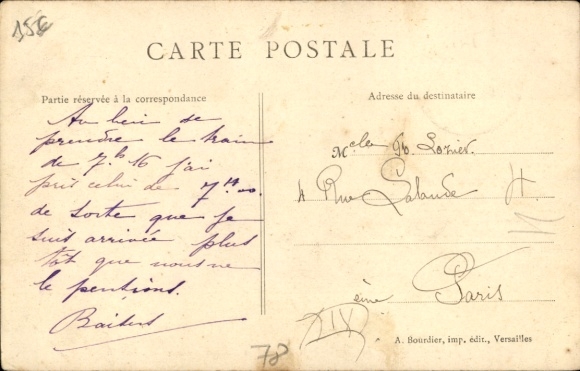 15€
CARTE POSTALE
Partie réservée à la correspondance
Au lieu de
prendre le train
de 7.h 16 j'ai
pris celui de 7.h
de sorte que je
suis arrivée plus
tôt que nous ne
le pensions.
Baisers
Adresse du destinataire
Melle Lozier.
4 Rue Lalande
Paris
XIV
78
A. Bourdier, imp. édit., Versailles